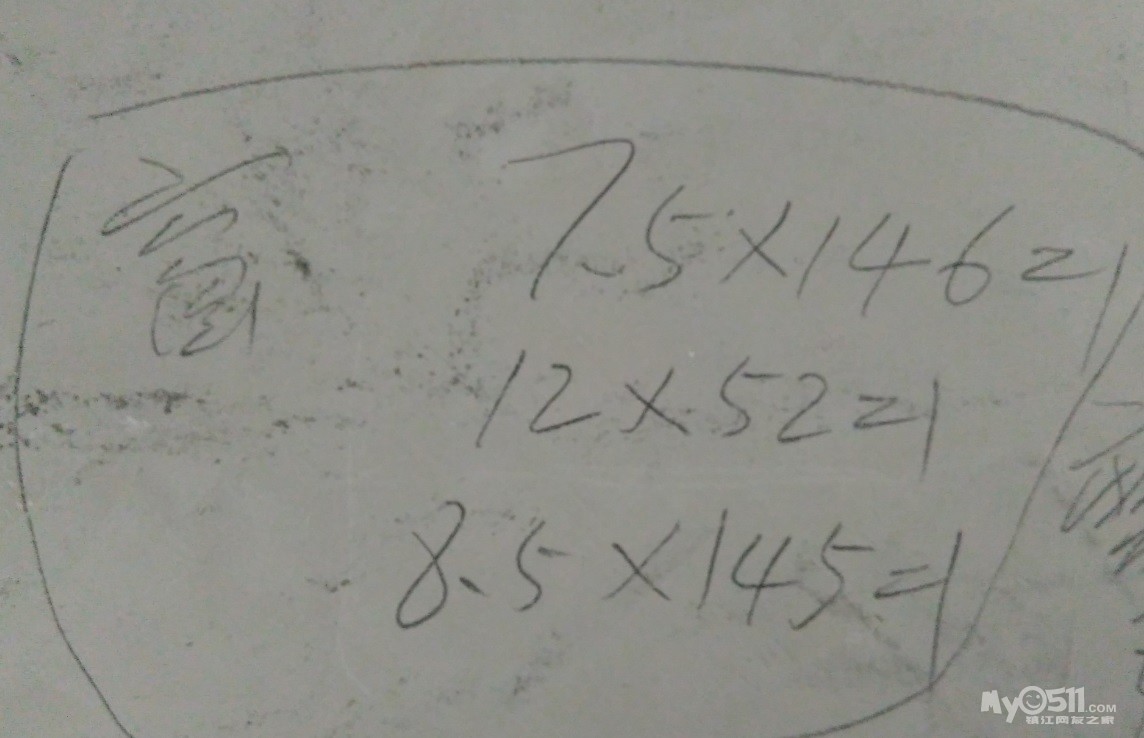 窗
7.5×146=1
12×52=1
8.5×145=1
My0511.COM
镇江网友之家